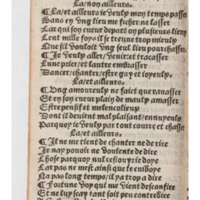 La/non ailleurs.
La/et ailleurs ie veulx moy temps passer
Dans vng lieu me fuster ne lasser
Car qui son cueur depart en plusieurs lieu
Cent mille foys il se treuue trop mieulx
Que sil vouloit vng seul lieu pourchasser
Je veulx aller/venir et tracasser
Lune prier/et lautre embrasser
Dancer/chanter/estre gay et ioyeulx
La/et ailleurs.
Vng amoureulx ne fait que ravasser
Et sy son cueur plain de amasser
Estre pensif et melencolieux
Dont il deuient mal plaisant/ennuyeulx
Parquoy ie veulx par tout courre et chasser
La/et ailleurs.
Il ne me tient de chanter ne de rire
Je nay pouoir ne voulente de dire
Chose parquoy nul ressourye: ie dye
Car pas ne mest ainsi que ie
Ha pas long temps/il ya trop a dire
Fortune voy qui me vient desconfire
Et me fait tant fort